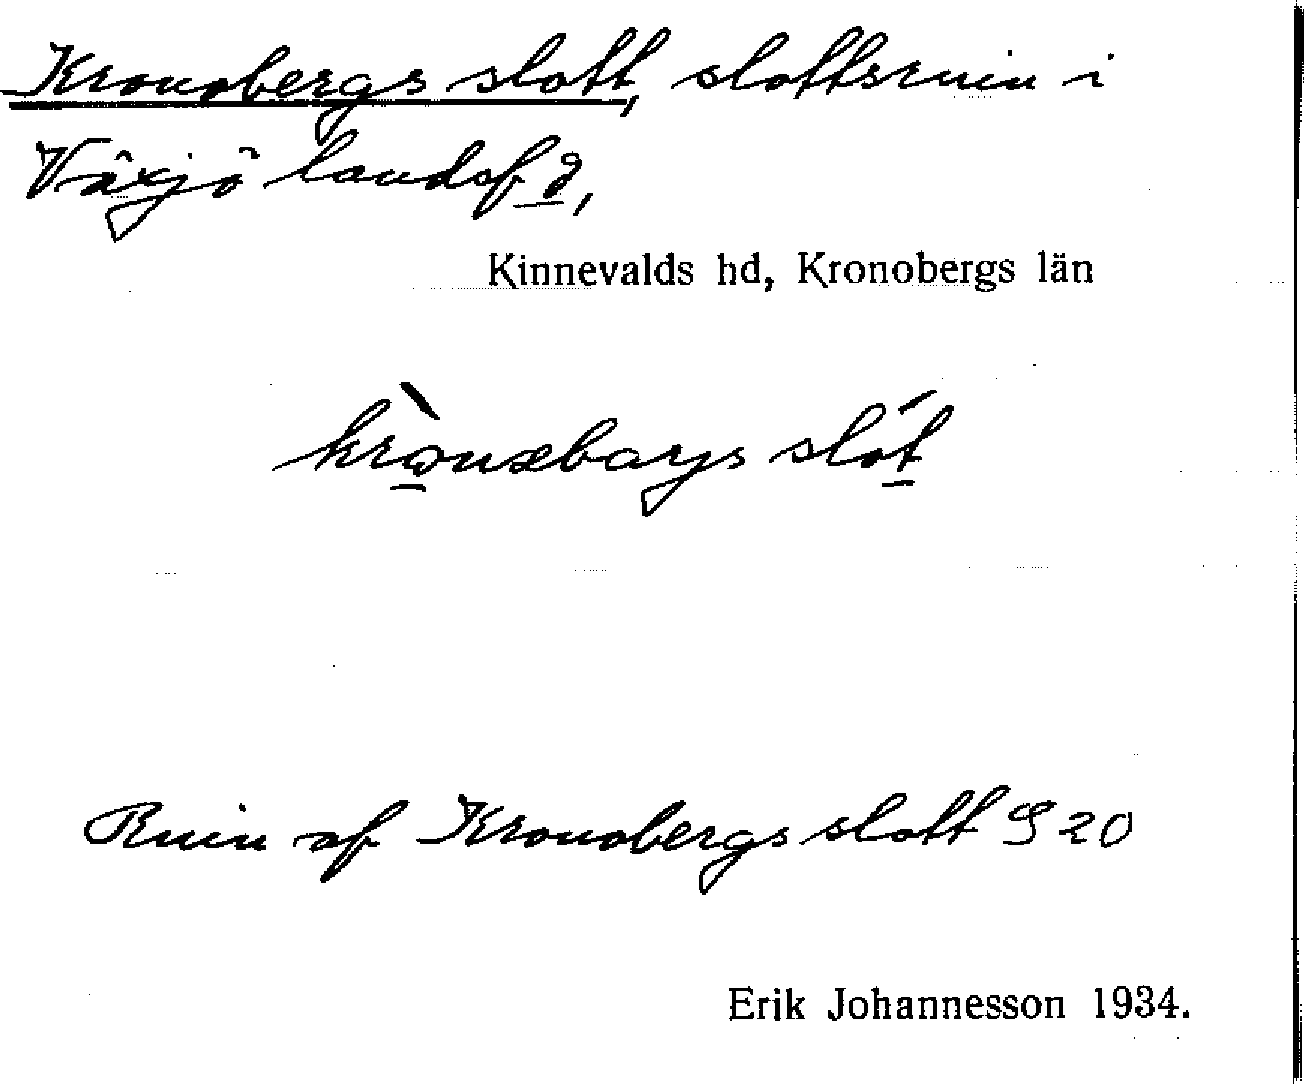 Kronobergs slott, slottsruin i
Växjö landsf d,
Kinnevalds hd, Kronobergs län
slót
Ruin af Kronobergs slott S 20
Erik Johannesson 1934.